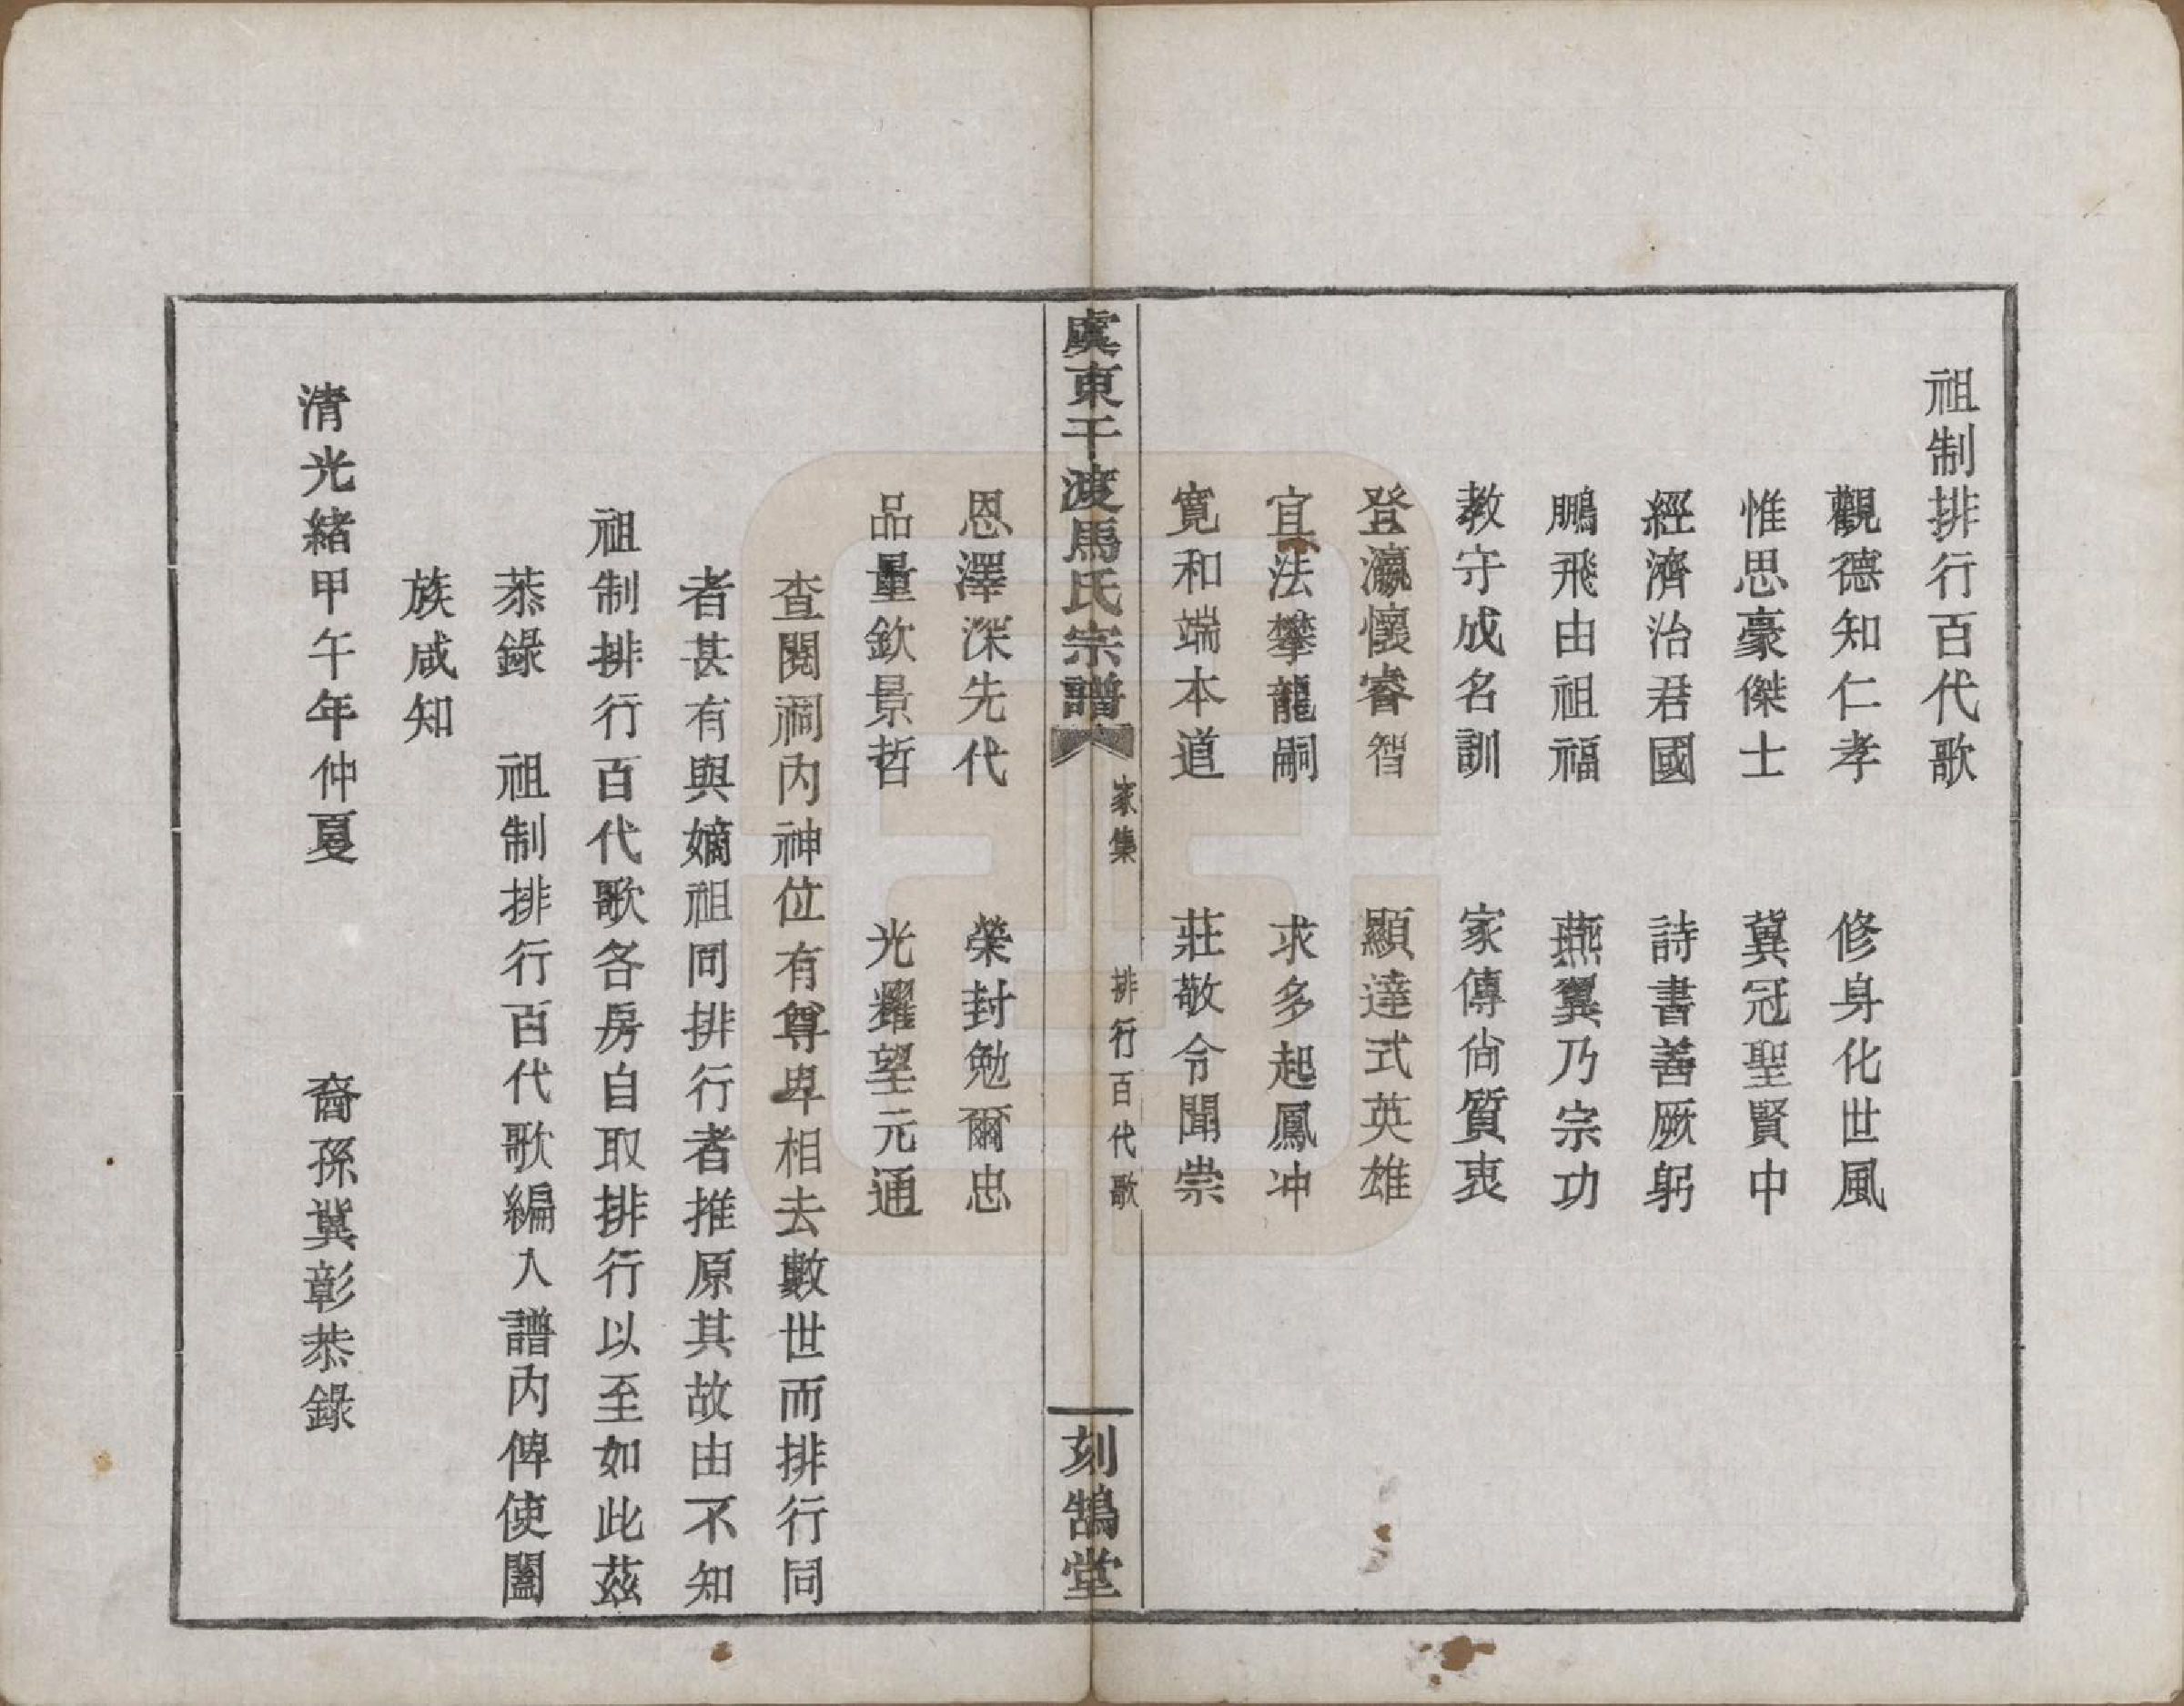 祖制排行百代歌
觀德知仁孝　修身化世風
惟思豪傑士　冀冠聖賢中
經濟治君國　詩書善厥躬
鵬飛由祖福　燕翼乃宗功
教守成名訓　家傳尙質衷
登瀛懷睿智　顯達式英雄
宜法攀龍嗣　求多起鳳冲
寬和端本道　莊敬令聞崇
虞東千渡馬氏宗譜　家集　排行百代歌　刻鵠堂
恩澤深先代　榮封勉爾忠
品量欽景哲　光耀望元通
查閱祠內神位有尊卑相去數世而排行同
者甚有與嫡祖同排行者推原其故由不知
祖制排行百代歌各房自取排行以至如此茲
恭錄　祖制排行百代歌編入譜內俾使闔
族咸知
清光緒甲午年仲夏　裔孫冀彰恭錄